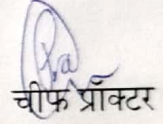 चीफ प्रॉक्टर